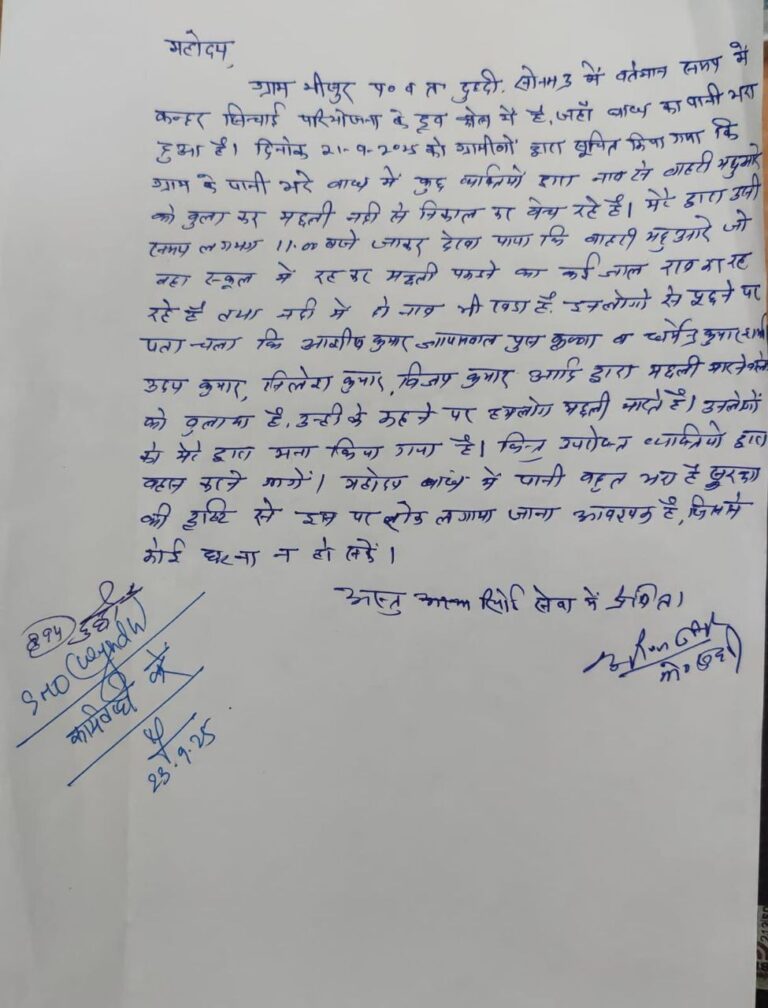 महोदय,
ग्राम भीसुर प० व त० दुद्धी, सोनभद्र में वर्तमान समय में
कनहर सिंचाई परियोजना के डूब क्षेत्र में है, जहाँ बांध का पानी भरा
हुआ है। दिनांक 21-9-2025 को ग्रामीणों द्वारा सूचित किया गया कि
ग्राम के पानी भरे बांध में कुछ व्यक्तियों द्वारा नाव से बाहरी मछुआरे
को बुला कर मछली नदी से निकाल कर बेच रहे है। मेरे द्वारा उसी
समय लगभग 11.00 बजे जाकर देखा पाया कि बाहरी मछुआरे जो
वहा स्कूल में रह कर मछली पकडने का कई जाल रख कर रह
रहे है तथा नदी में दो नाव भी खडा है. इनलोगो से पूछने पर
पता चला कि आशीष कुमार जायसवाल पुत्र कृष्णा व धर्मेन्द्र कुमार
उदय कुमार, मिलेश कुमार, विजय कुमार आदि द्वारा मछली मारने
को बुलाया है, उन्ही के कहने पर हमलोग मछली मारते है। उनलोगों
को मेरे द्वारा मना किया गया है। किन्तु उपरोक्त व्यक्तियो द्वारा
बहस करने लगे। महोदय बांध में पानी बहुत भरा है सुरक्षा
की दृष्टि से इस पर रोक लगाया जाना आवश्यक है, जिससे
कोई घटना न हो सकें।
अस्तु आख्या रिपोर्ट सेवा में प्रेषित।
SHO
कार्यवाही करें
23.9.25